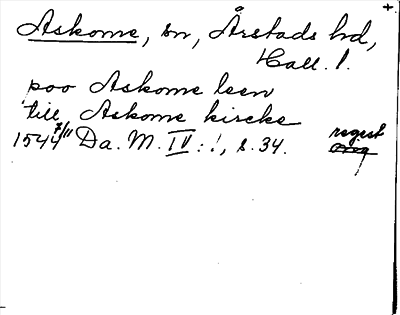 +
Askome, sn, Årstads hd,
Hall. l.
poo Askome leen
till Askome kircke
1544 7/11 Da. M. IV: 1, s. 34. regest
orig